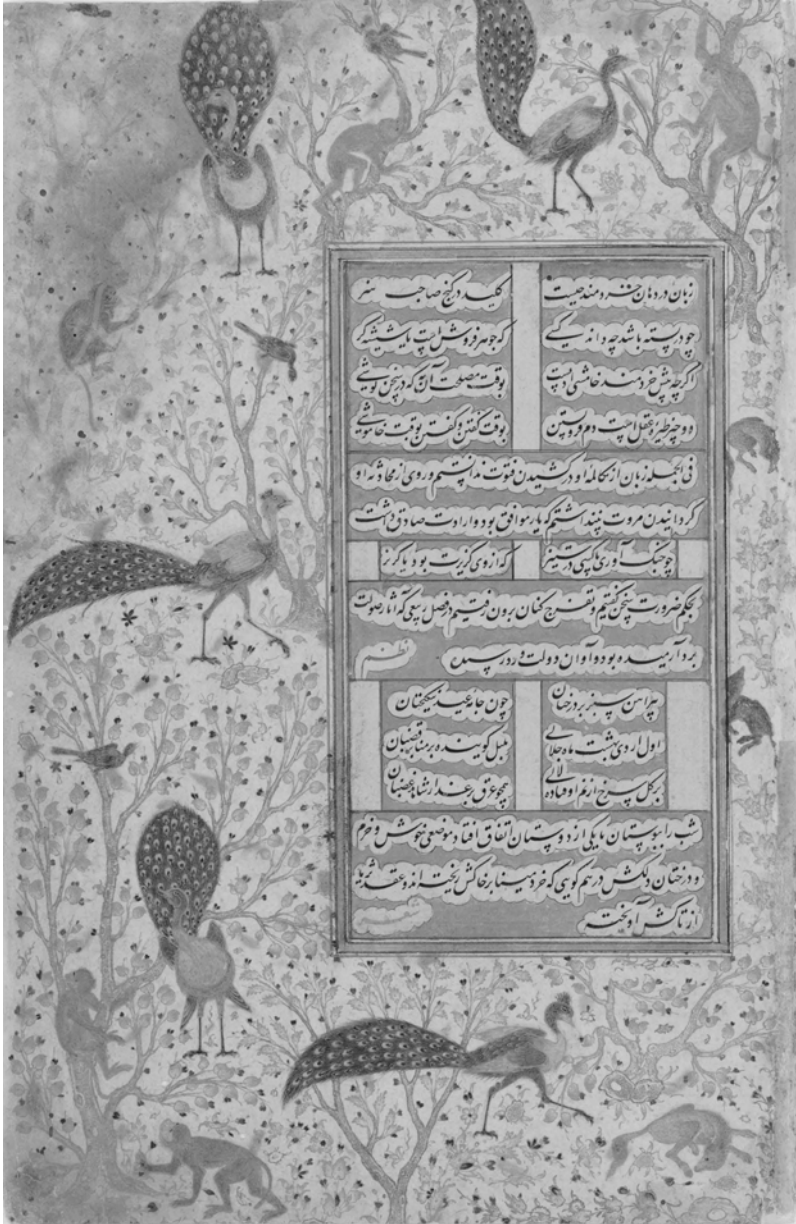 زبان در دهان خردمند چیست کلید در گنج صاحب هنر
چو در بسته باشد چه داند کسی که جوهر فروش است یا شیشه‌گر
اگرچه پیش خردمند خامشی ادبست بوقت مصلحت آن به که در سخن کوشی
دو چیز طیره عقل است دم فرو بستن بوقت گفتن و گفتن بوقت خاموشی
فی الجمله زبان از مکالمه او در کشیدن فتوت ندانستم و روی از محادثه او
گردانیدن مروت نپنداشتم که یار موافق بود و ارادت صادق داشت
چو جنگ آوری با کسی در ستیز که از وی گزیرت بود یا گریز
بحکم ضرورت سخن گفتیم و تفرج کنان برون رفتیم در فصل ربیعی که آثار صولت
برد آرمیده بود و آوان دولت ورد رسیده نظم
پیراهن سبز بر درختان چون جامه عید نیکبختان
اول اردی بهشت ماه جلالی بلبل گوینده بر منابر قضبان
بر گل سرخ از نم اوفتاده لآلی همچو عرق بر عذار شاهد غضبان
شب را ببوستان با یکی از دوستان اتفاق افتاد موضعی خوش و خرم
و درختان دلکش درهم گویی که خرده مینا بر خاکش ریخته اند و عقد ثریا
از تاکش آویخته